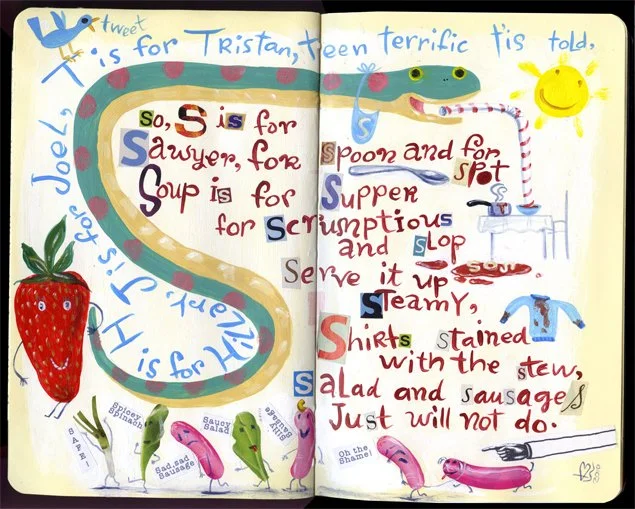 tweet
T is for Tristan, teen terrific t'is told,
Joel,
J is for
Hilary,
H is for
So, S is for
Sawyer, for Spoon and for Spot
Soup is for Supper
for Scrumptious
and Slop
Soup
Serve it up
Steamy,
Shirts stained
with the stew,
Salad and sausages
Just will not do.
SAFE!
Spicey Spinach
Sad, sad Sausage
Saucy Salad
Silly Sausage
Oh the Shame!